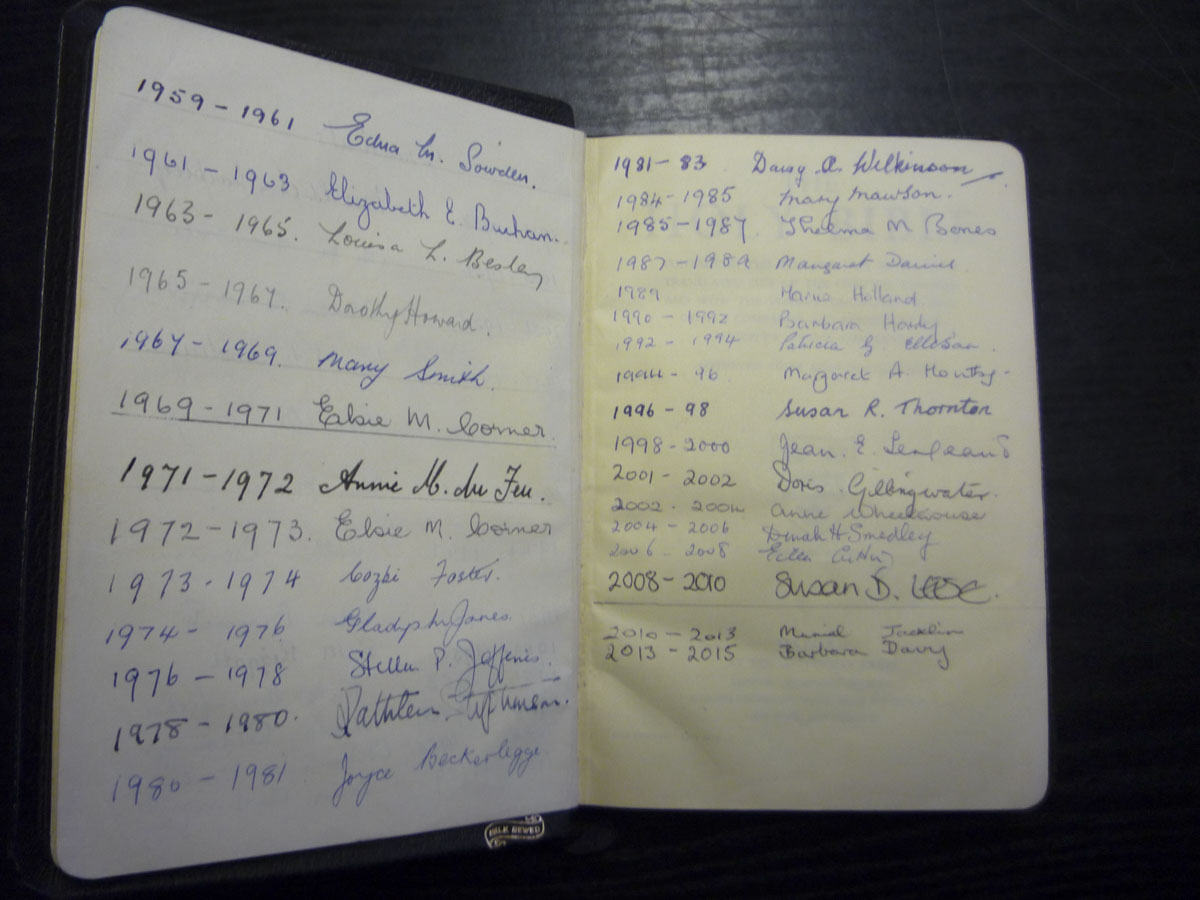 1959 - 1961 Edna M. Sowden.
1961 - 1963 Elizabeth E. Buchan.
1963 - 1965. Louisa L. Besley
1965 - 1967. Dorothy Howard.
1967 - 1969. Mary Smith.
1969 - 1971 Elsie M. Corner.
1971 - 1972 Annie M. du Feu.
1972 - 1973. Elsie M. Corner
1973 - 1974 Cozbi Foster.
1974 - 1976 Gladys M. Jones.
1976 - 1978 Stella P. Jefferis.
1978 - 1980. Kathleen
1980 - 1981 Joyce Beckerlegge.
SILK SEWED
1981 - 83 Daisy A. Wilkinson
1984 - 1985 Mary Mawson.
1985 - 1987. Thelma M Bones
1987 - 1989 Margaret Daniel
1989 Marie Holland
1990 - 1992 Barbara Hardy
1992 - 1994 Patricia G. Ellison.
1994 - 96 Margaret A.
1996 - 98 Susan R. Thornton
1998 - 2000 Jean. E. Sergeant
2001 - 2002 Doris Gillingwater.
2002 - 2004 Anne Wheelhouse
2004 - 2006 Dinah H. Smedley
2006 - 2008
2008 - 2010 Susan D. Leese.
2010 - 2013 Muriel Jacklin
2013 - 2015 Barbara Davy